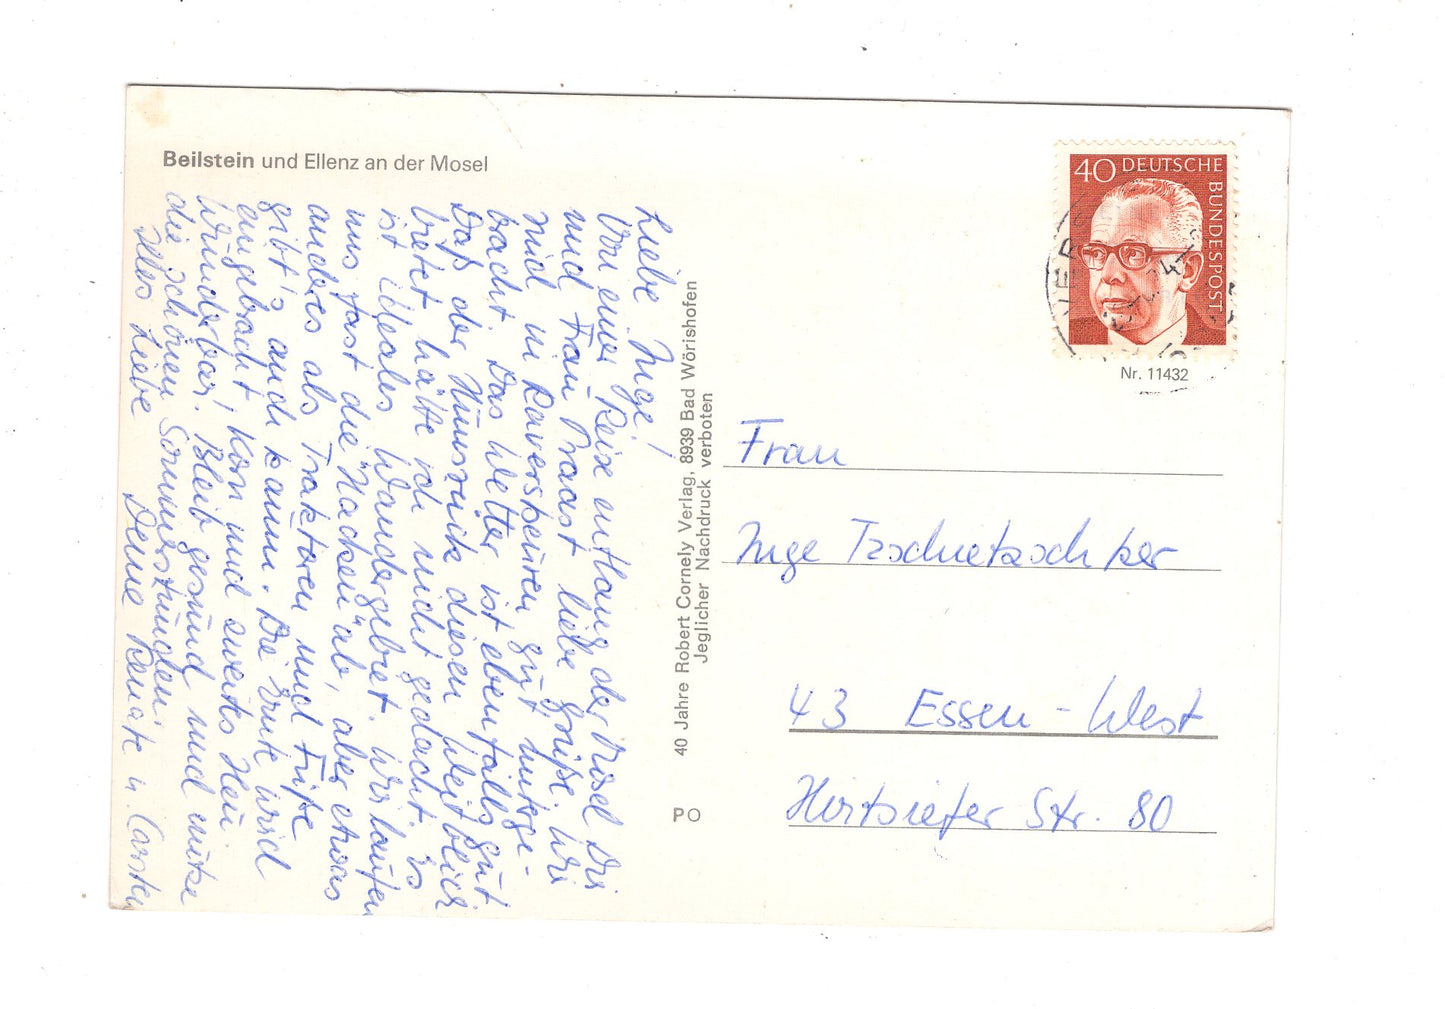 Beilstein und Ellenz an der Mosel
Liebe Inge!
Von einer Reise entlang der Mosel Dir
und Frau Praast liebe Grüße. Wir
sind in Raversbeuren gut unterge-
bracht. Das Wetter ist ebenfalls gut
Daß der Hunsrück diesen Weitblick
bietet hätte ich nicht gedacht. Es
ist ideales Wandergebiet. Wir laufen
uns fast die Hacken ab, aber etwas
anderes als Traktoren und Füße
gibt's auch kaum. Die Ernte wird
eingebracht! Korn und zweites Heu
Wunderbar! Bleib gesund und nutze
die schönen Sommerstunden.
Alles Liebe Deine Renate u. Carsten
40 Jahre Robert Cornely Verlag, 8939 Bad Wörishofen
Jeglicher Nachdruck verboten
PO
40 DEUTSCHE
BUNDESPOST
Nr. 11432
Frau
Inge
43 Essen-West
Hirtsiefer Str. 80